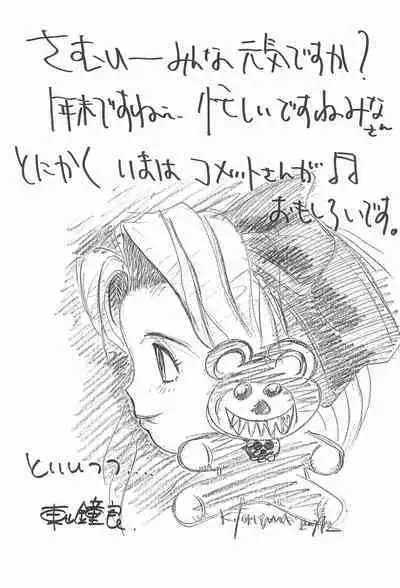 さむいーみんな元気ですか?
年末ですねぇ 忙しいですねみなさん
とにかく いまは コメットさんが♫
おもしろいです。
といいつつ....